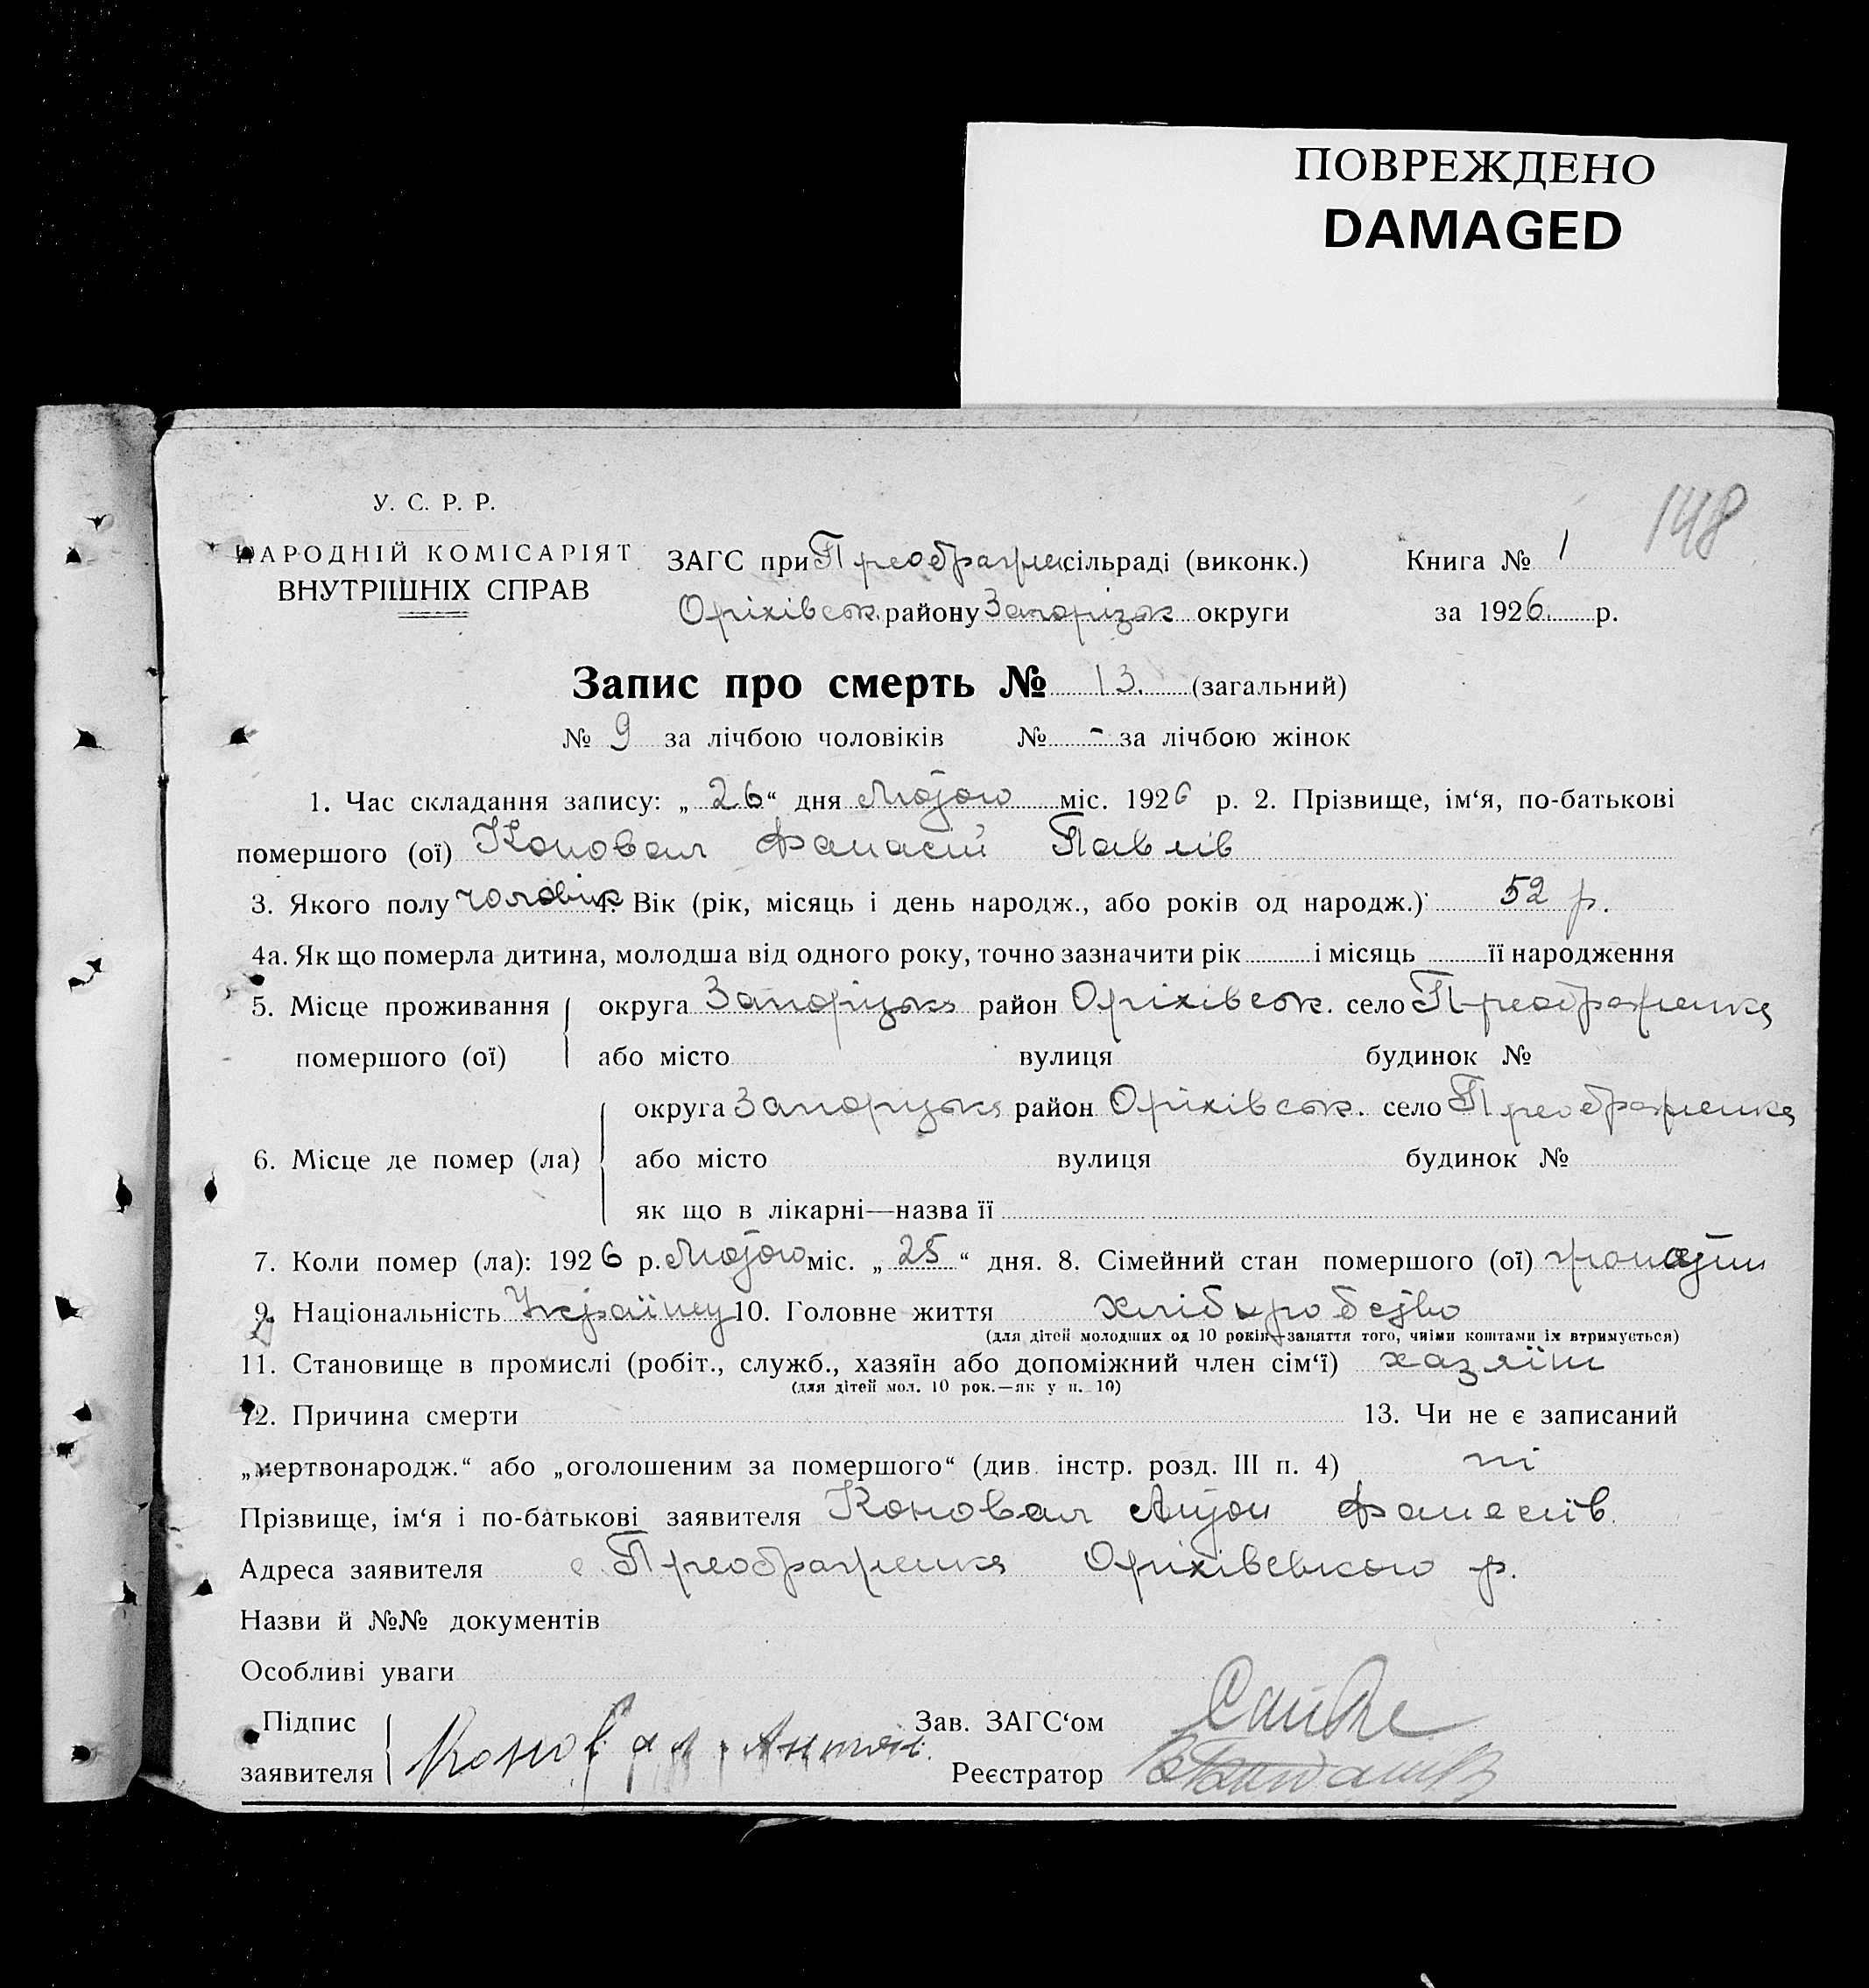 ПОВРЕЖДЕНО
DAMAGED
148
У. С. Р. Р.
НАРОДНІЙ КОМІСАРІЯТ
ВНУТРІШНІХ СПРАВ
ЗАГС при Преображен сільраді (виконк.)
Оріхівськ. району Запорізьк округи
Книга № 1
за 1926 р.
Запис про смерть № 13. (загальний)
№ 9 за лічбою чоловіків № - за лічбою жінок
1. Час складання запису: „ 26 “ дня Лютого міс. 1926 р. 2. Прізвище, ім‘я, по-батькові
помершого (ої) Коновал Фанасій Павлів
3. Якого полу чоловік 4. Вік (рік, місяць і день народж., або років од народж.) 52 р.
4а. Як що померла дитина, молодша від одного року, точно зазначити рік і місяць її народження
5. Місце проживання округа Запорізька район Оріхівськ. село Преображенка
помершого (ої) або місто вулиця будинок №
округа Запорізька район Оріхівськ. село Преображенка
6. Місце де помер (ла) або місто вулиця будинок №
як що в лікарні—назва її
7. Коли помер (ла): 1926 р. Лютого міс. „ 25 “ дня. 8. Сімейний стан помершого (ої) жонатий
9. Національність Українец 10. Головне життя хліборобство
(для дітей молодших од 10 років—заняття того, чиїми коштами їх втримується)
11. Становище в промислі (робіт., служб., хазяїн або допоміжний член сім‘ї) хазяїн
(для дітей мол. 10 рок.—як у п. 10)
12. Причина смерти 13. Чи не є записаний
„мертвонародж.“ або „оголошеним за помершого“ (див. інстр. розд. III п. 4) ні
Прізвище, ім‘я і по-батькові заявителя Коновал Антон Фанасіїв
Адреса заявителя с. Преображенка Оріхівського р.
Назви й №№ документів
Особливі уваги
Підпис
заявителя Коновал Антон
Зав. ЗАГС‘ом
Реєстратор